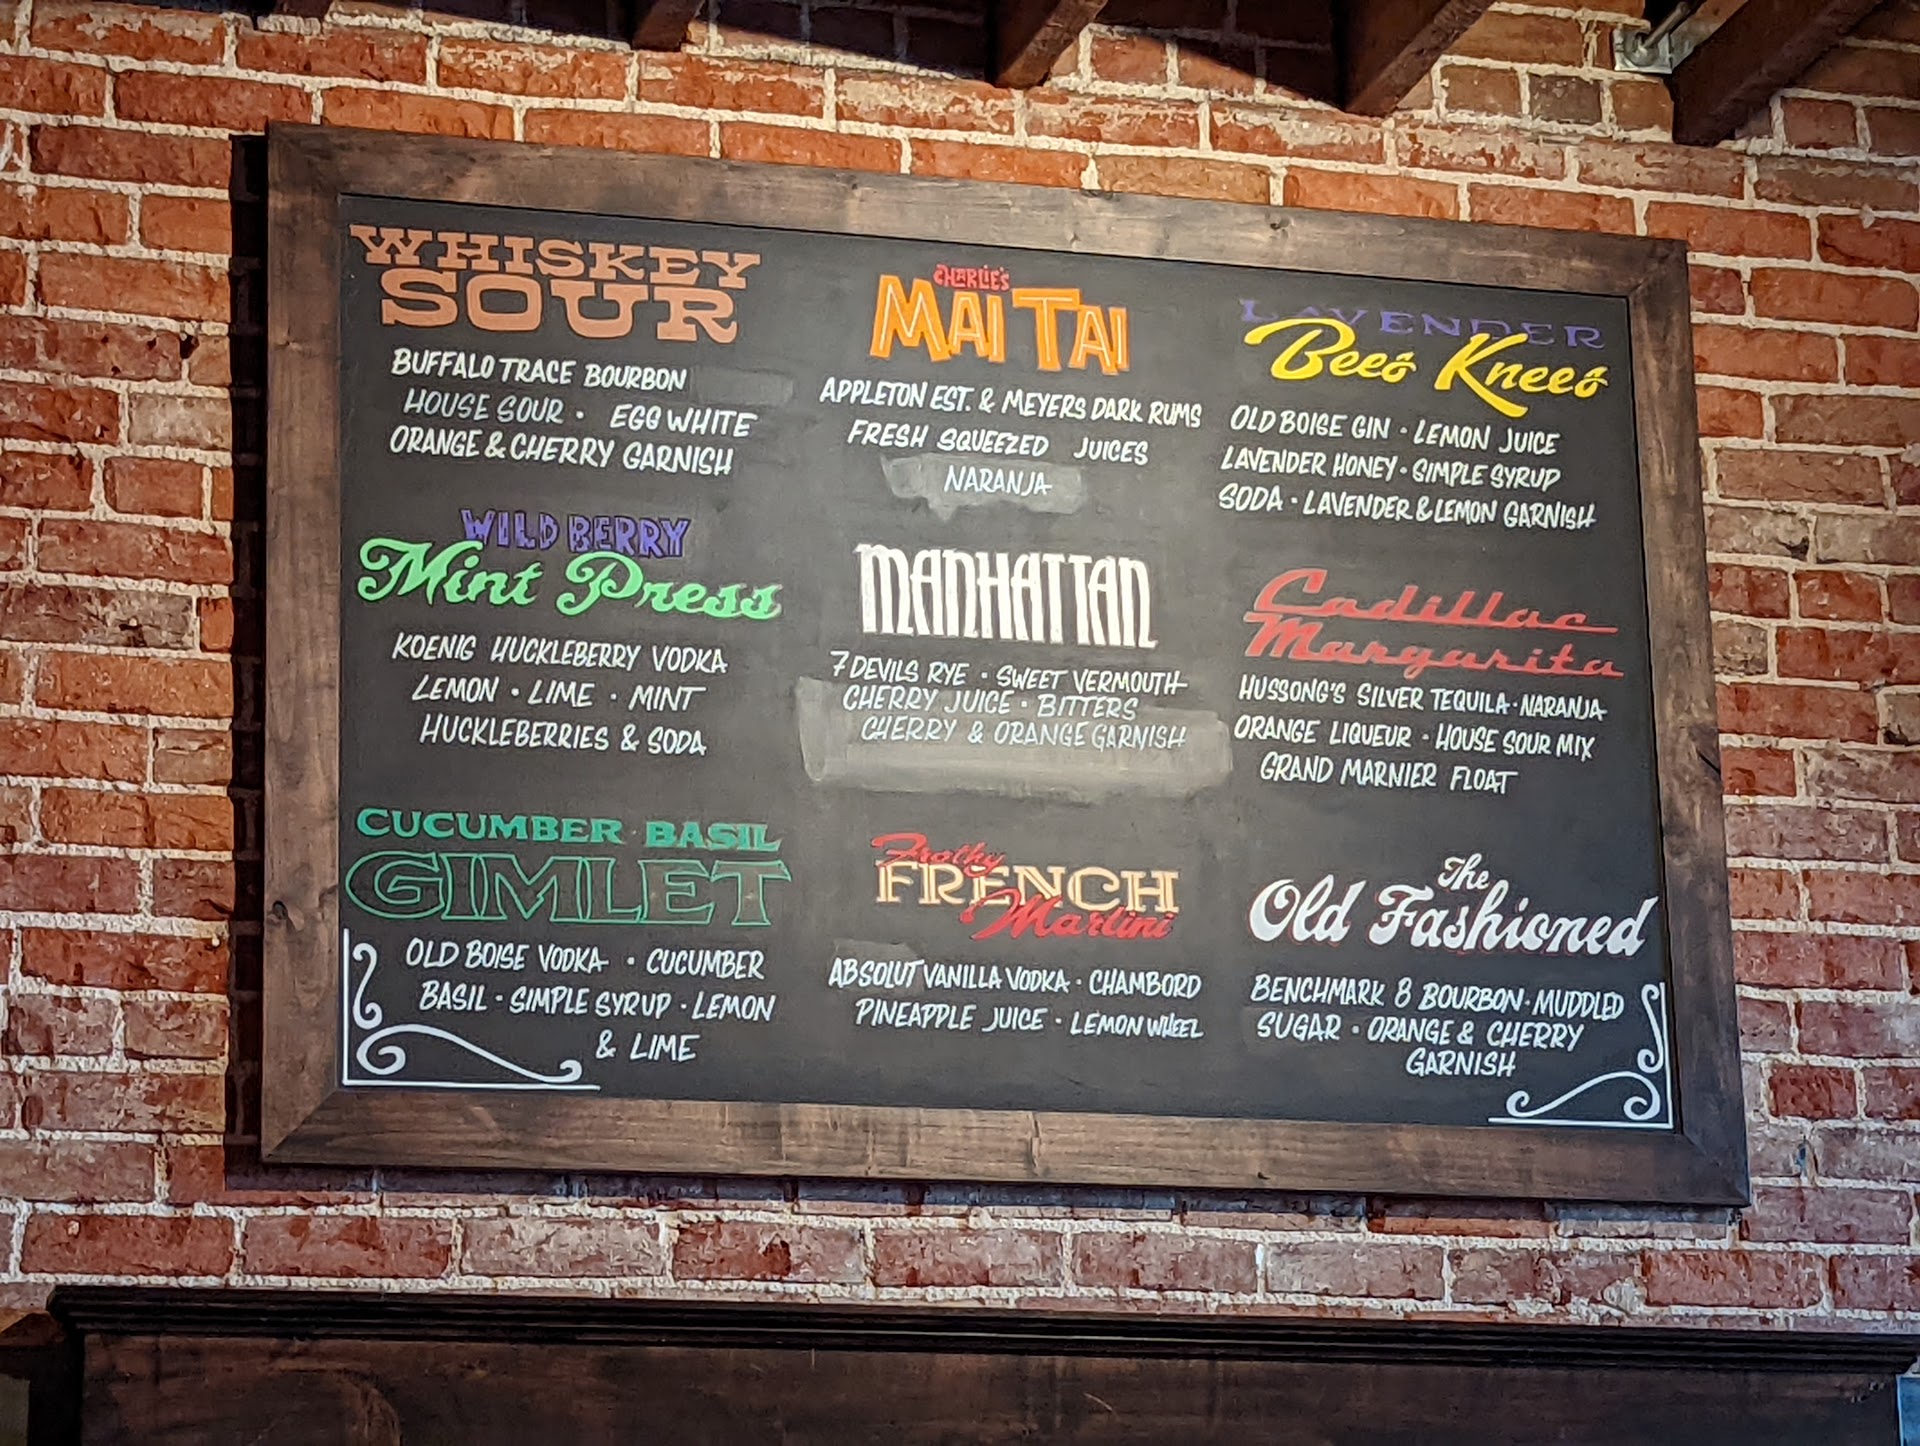 WHISKEY
SOUR
BUFFALO TRACE BOURBON
HOUSE SOUR · EGG WHITE
ORANGE & CHERRY GARNISH
CHARLIE'S
MAI TAI
APPLETON EST. & MEYERS DARK RUMS
FRESH SQUEEZED JUICES
NARANJA
LAVENDER
Bees Knees
OLD BOISE GIN · LEMON JUICE
LAVENDER HONEY · SIMPLE SYRUP
SODA · LAVENDER & LEMON GARNISH
WILD BERRY
Mint Press
KOENIG HUCKLEBERRY VODKA
LEMON · LIME · MINT
HUCKLEBERRIES & SODA
MANHATTAN
7 DEVILS RYE · SWEET VERMOUTH
CHERRY JUICE · BITTERS
CHERRY & ORANGE GARNISH
Cadillac
Margarita
HUSSONG'S SILVER TEQUILA · NARANJA
ORANGE LIQUEUR · HOUSE SOUR MIX
GRAND MARNIER FLOAT
CUCUMBER · BASIL
GIMLET
OLD BOISE VODKA · CUCUMBER
BASIL · SIMPLE SYRUP · LEMON
& LIME
Frothy
FRENCH
Martini
ABSOLUT VANILLA VODKA · CHAMBORD
PINEAPPLE JUICE · LEMON WHEEL
The
Old Fashioned
BENCHMARK 8 BOURBON · MUDDLED
SUGAR · ORANGE & CHERRY
GARNISH